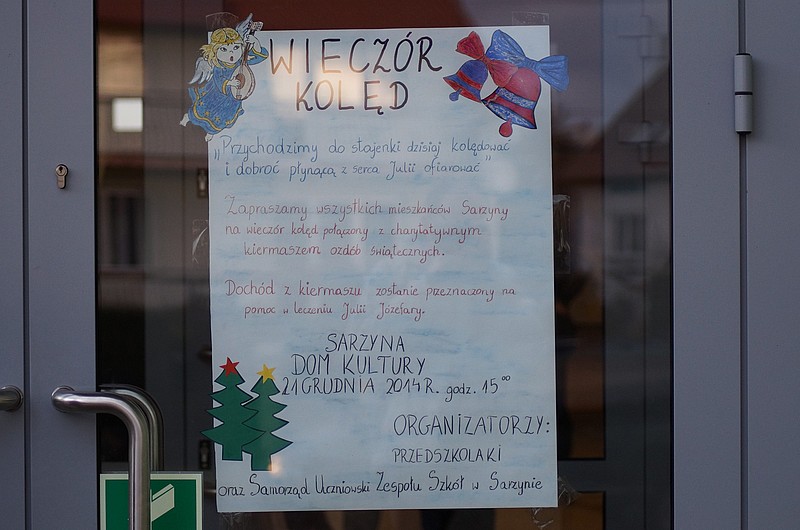 WIECZÓR
KOLĘD
„Przychodzimy do stajenki dzisiaj kolędować
i dobroć płynącą z serca Julii ofiarować”
Zapraszamy wszystkich mieszkańców Sarzyny
na wieczór kolęd połączony z charytatywnym
kiermaszem ozdób świątecznych.
Dochód z kiermaszu zostanie przeznaczony na
pomoc w leczeniu Julii Józefary.
SARZYNA
DOM KULTURY
21 GRUDNIA 2014 R. godz. 15⁰⁰
ORGANIZATORZY:
PRZEDSZKOLAKI
oraz Samorząd Uczniowski Zespołu Szkół w Sarzynie